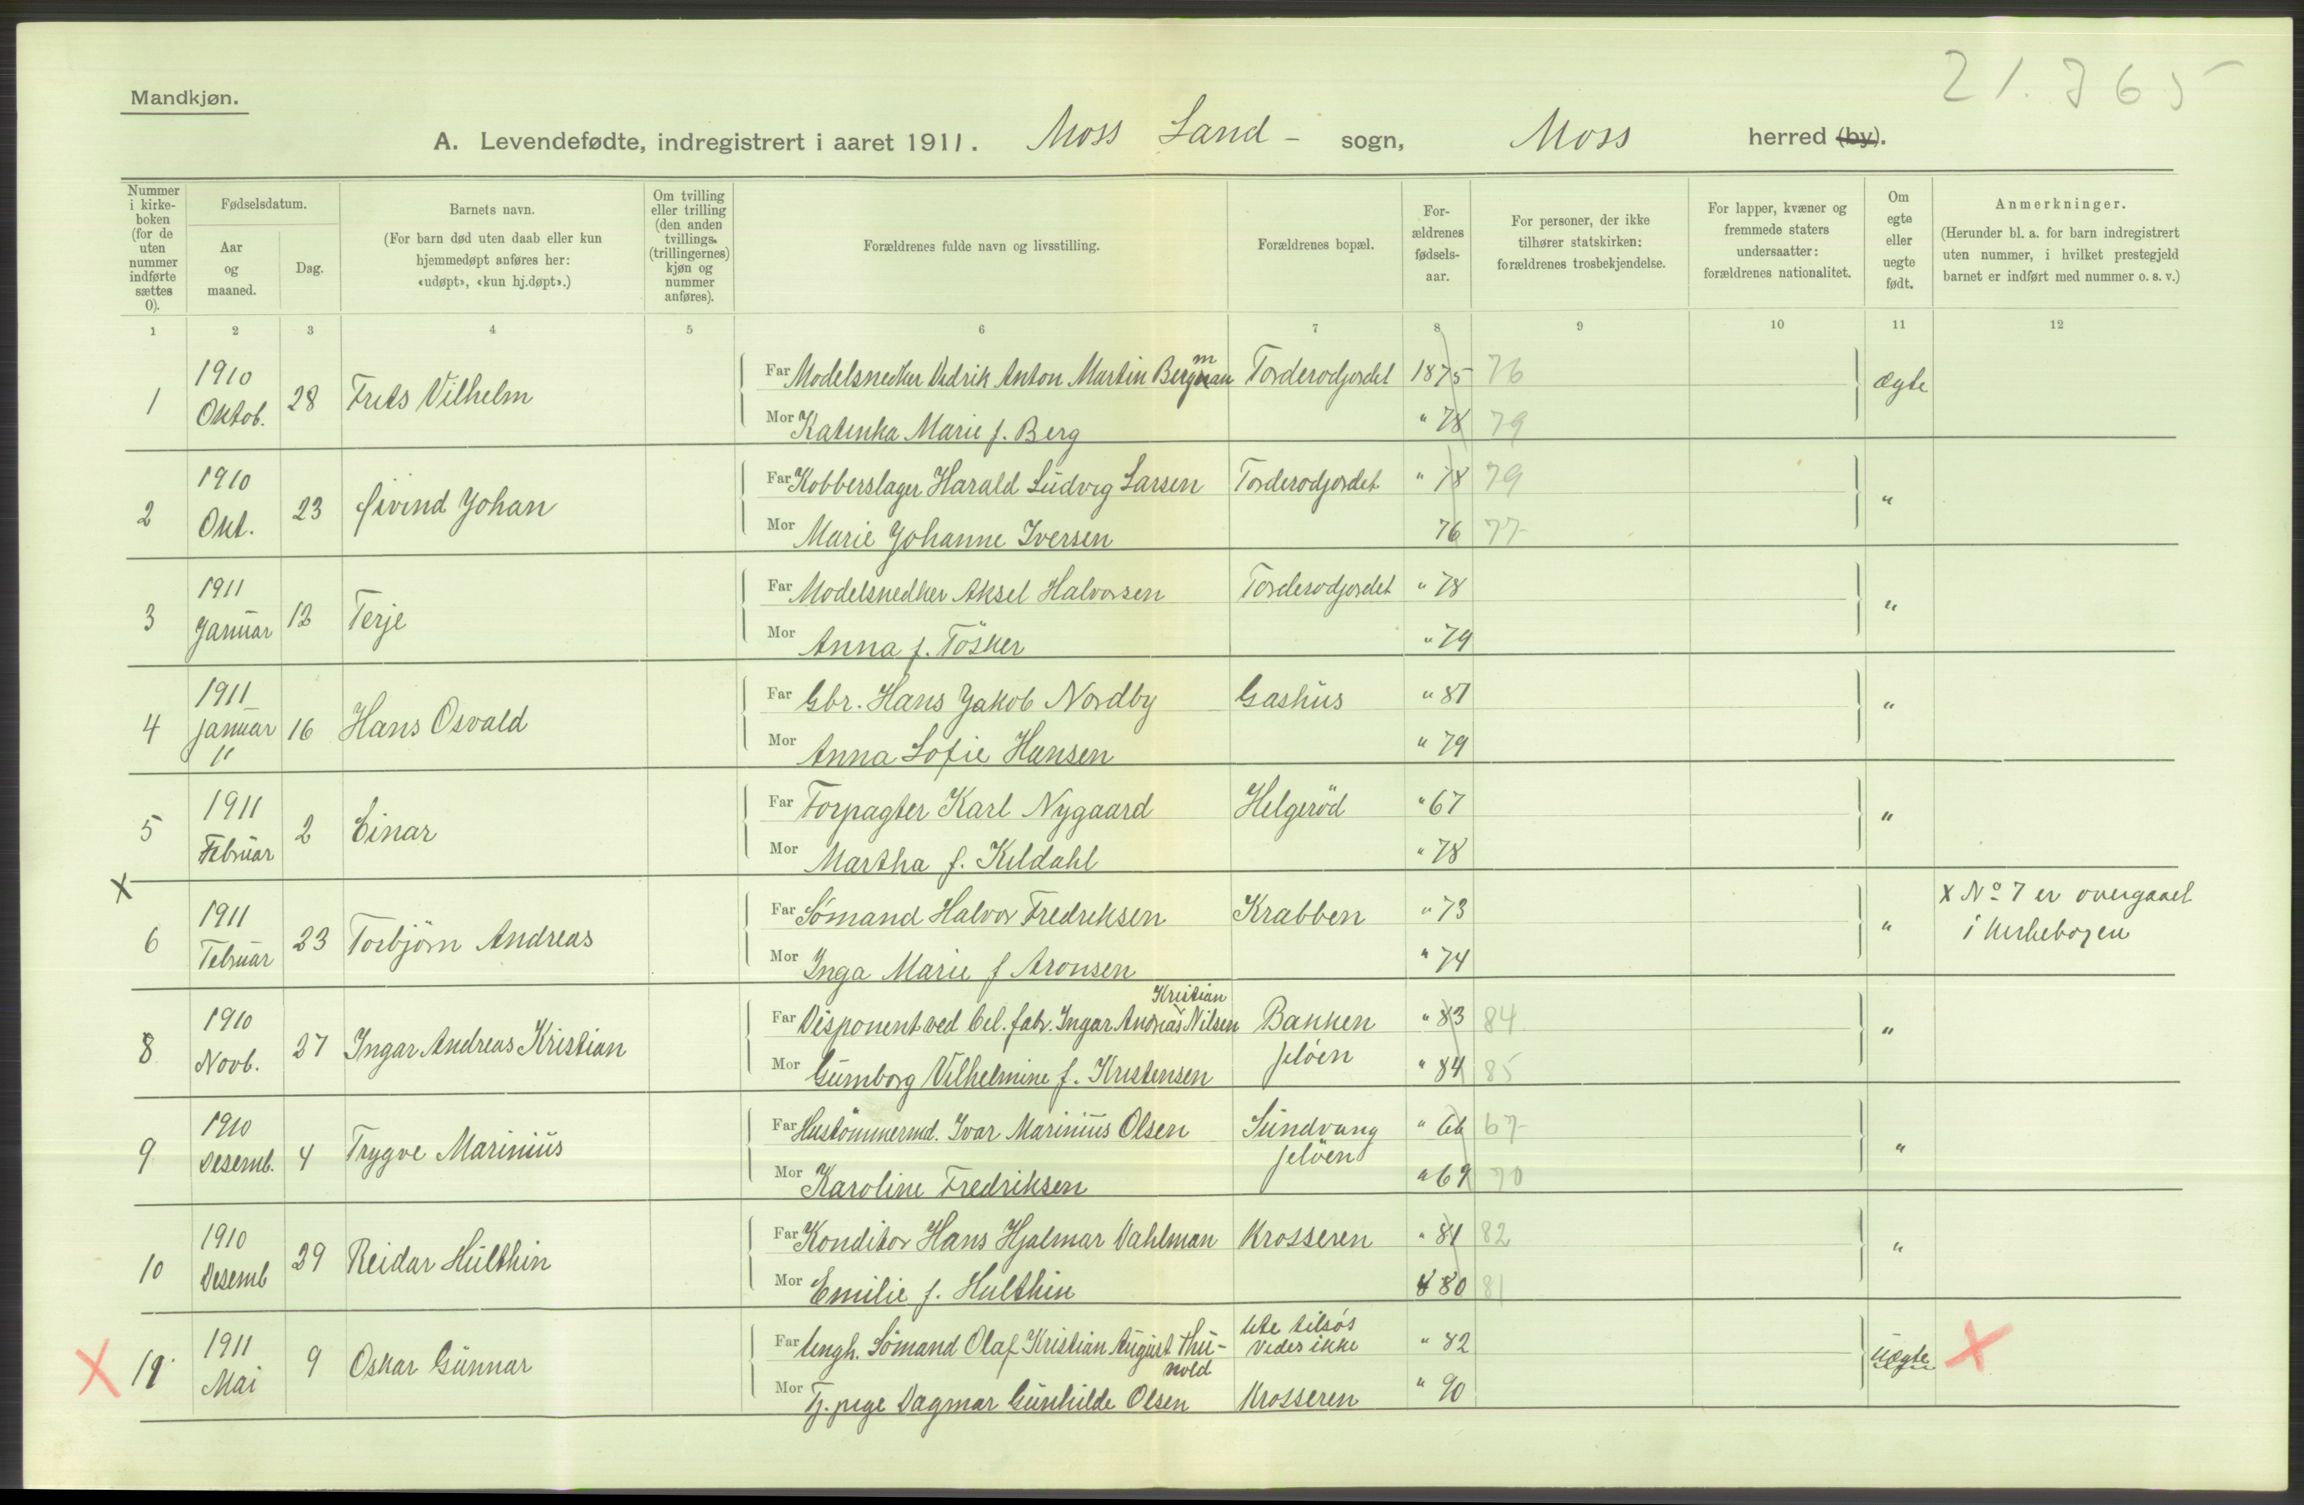 21.765
Mandkjøn.
A. Levendefødte, indregistrert i aaret 1911. Moss Land- sogn, Moss herred (by).
Nummer i kirke-boken (for de uten nummer indførte sættes 0).
Fødselsdatum.
Aar og maaned.
Dag.
Barnets navn.
(For barn død uten daab eller kun hjemmedøpt anføres her: «udøpt», «kun hj.døpt».)
Om tvilling eller trilling (den anden tvillings. (trillingernes) kjøn og nummer anføres).
Forældrenes fulde navn og livsstilling.
Forældrenes bopæl.
For-ældrenes fødsels-aar.
For personer, der ikke tilhører statskirken: forældrenes trosbekjendelse.
For lapper, kvæner og fremmede staters undersaatter: forældrenes nationalitet.
Om egte eller uegte født.
Anmerkninger.
(Herunder bl. a. for barn indregistrert uten nummer, i hvilket prestegjeld barnet er indført med nummer o. s. v.)
1 2 3 4 5 6 7 8 9 10 11 12
1 1910 Oktob. 28 Frits Vilhelm
Far Modelsnedker Didrik Anton Martin Bergman Torderodjordet 1875 76 Ægte
Mor Katinka Marie f. Berg " 78 79
2 1910 Okt. 23 Øivind Johan
Far Kobberslager Harald Ludvig Larsen Torderodjordet " 78 79 "
Mor Marie Johanne Iversen 76 77
3 1911 Januar 12 Terje
Far Modelsnedker Aksel Halvorsen Torderodjordet " 78 "
Mor Anna f. Tösker " 79
4 1911 Januar 16 Hans Osvald
Far Gbr. Hans Jakob Nordby Gashus " 81 "
Mor Anna Sofie Hansen " 79
5 1911 Februar 2 Einar
Far Forpagter Karl Nygaard Helgeröd " 67 "
Mor Martha f. Kildahl " 78
X
6 1911 Februar 23 Torbjørn Andreas
Far Sømand Halvor Fredriksen Krabben " 73 " X No 7 er overgaaet
Mor Inga Marie f Aronsen " 74 i kirkebogen
8 1910 Novb. 27 Ingar Andreas Kristian
Far Disponent ved Cel. fabr. Ingar Andreas Kristian Nilsen Bakken " 83 84 "
Mor Gumborg Vilhelmine f. Kristensen Jeløen " 84 85
9 1910 Desemb. 4 Trygve Marinius
Far Hustömmermd. Ivar Marinius Olsen Sundvang " 66 67 "
Mor Karoline Fredriksen Jeløen " 69 70
10 1910 Desemb 29 Reidar Hulthin
Far Konditor Hans Hjalmar Dahlman Krosseren " 81 82 "
Mor Emilie f. Hulthin 80 81
X 11 1911 Mai 9 Oskar Gunnar
Far Ungk. Sömand Olaf Kristian August Thu-nold Ute tilsøs Vides ikke " 82 Uægte X
Mor Tj.pige Dagmar Gunhilde Olsen Krosseren " 90